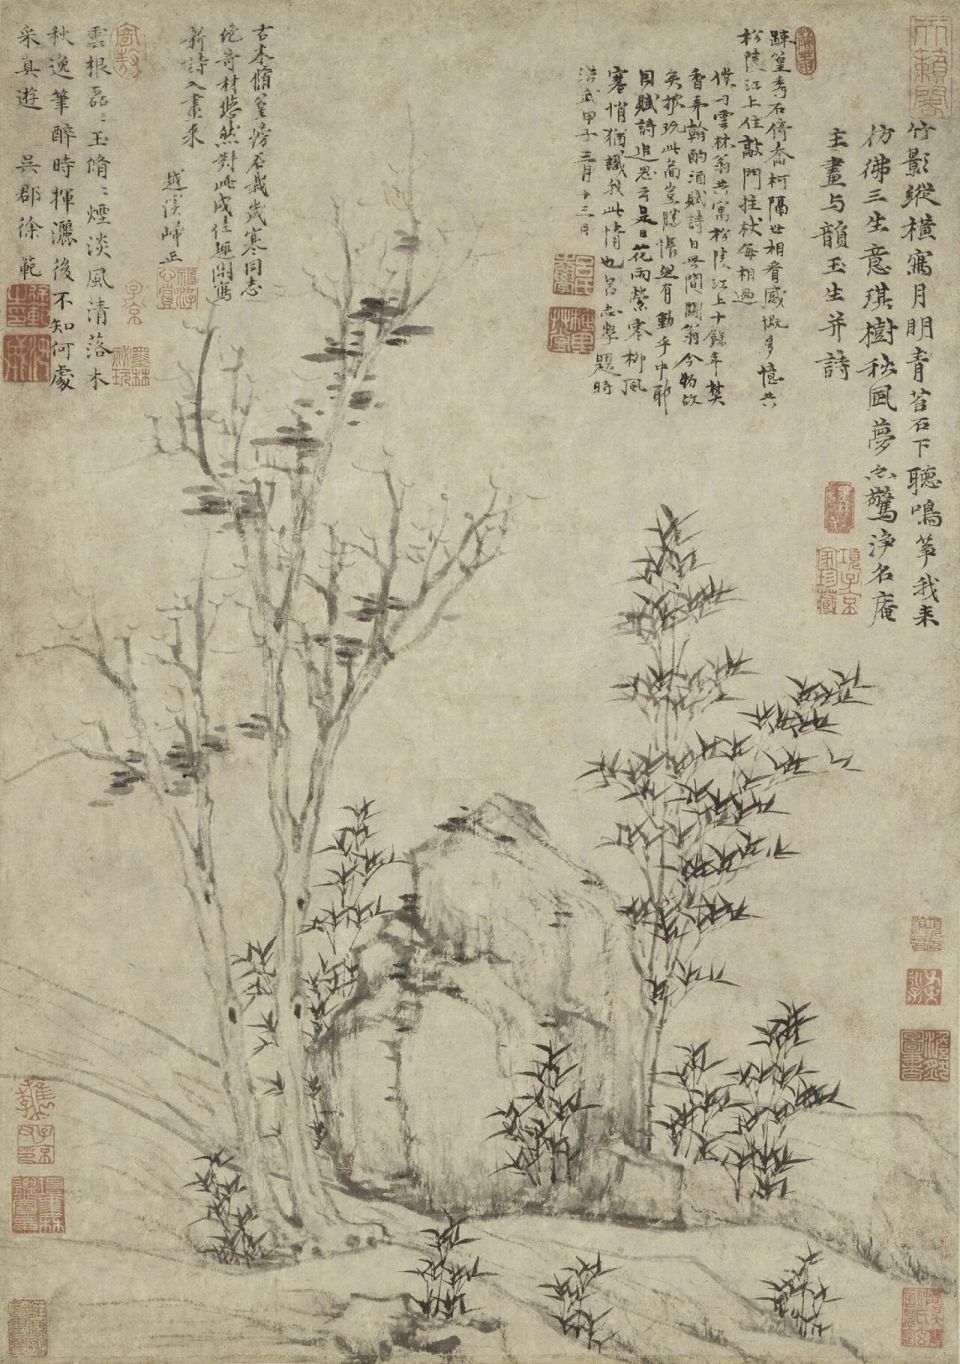 竹影縱橫寫月明青苔石下聽鳴箏我來
仿佛三生意琪樹秋風夢驚淨名庵
主畫与韻玉生并詩
疎篁秀石倚喬柯隔世相看感慨多憶共
松陵江上住敲門拄杖每相過
僕与雲林翁共寓松陵江上十餘年焚
香弄翰酌酒賦詩日無間闊翁今物故
矣披玩此豈勝悵然有動乎中耶
因賦詩追思云是日花雨縈寒柳風
寒悄猶識我此情也呂志學題時
洪武甲子三月廿三日
古木脩篁傍石栽歲寒同志
絕奇材悠然對此成佳趣閒寫
新詩入畫來
越溪正
雲根磊〻玉脩〻煙淡風清落木
秋逸筆醉時揮灑後不知何處
采真遊 吳郡徐範
天籟閣
項子京家珍藏
子京
墨林秘玩